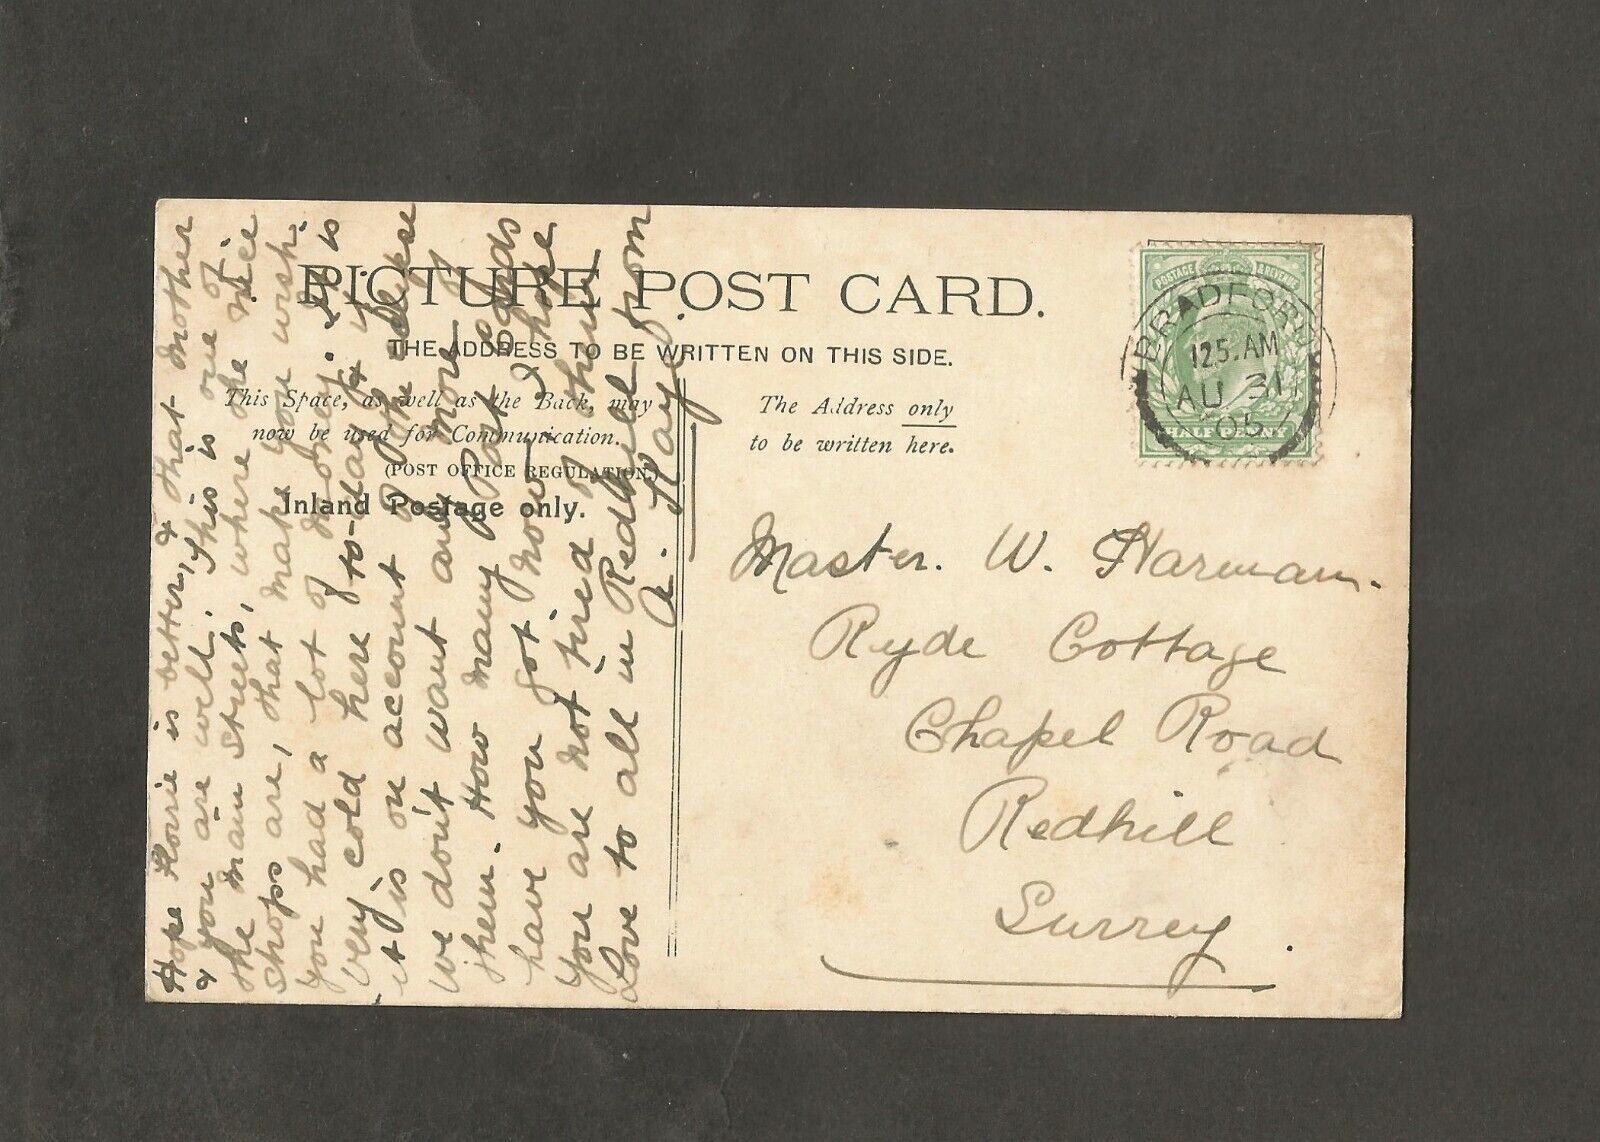 PICTURE POST CARD.
THE ADDRESS TO BE WRITTEN ON THIS SIDE.
This Space, as well as the Back, may
now be used for Communication.
(POST OFFICE REGULATION.)
Inland Postage only.
The Address only
to be written here.
POSTAGE & REVENUE
HALF PENNY
BRADFORD
125.AM
AU 31
05
Master. W. Harmam.
Ryde Cottage
Chapel Road
Redhill
Surrey.
Hope Florrie is better, & that Mother
& you are well. This is one of
the main streets, where the nice
shops are, that make you wish
you had a lot of money. It is
very cold here to-day &
it is on account of the eclipse
we don't want any more of
them. How many Post Cards
have you got now, I hope
you are not tired of them
Love to all in Redhill from
A. Kay.